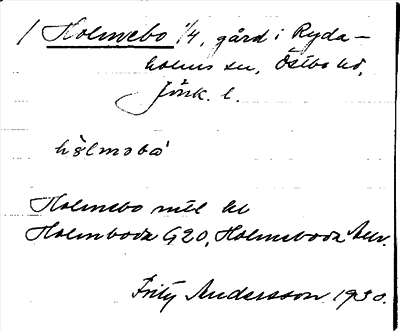 / Holmebo 1/4, gård i Ryda-
holms sn, Östbo hd,
Jönk. l.
hålmabo
Holmebo mtl kl
Holmboda G20, Holmeboda
Fritz Andersson 1930.